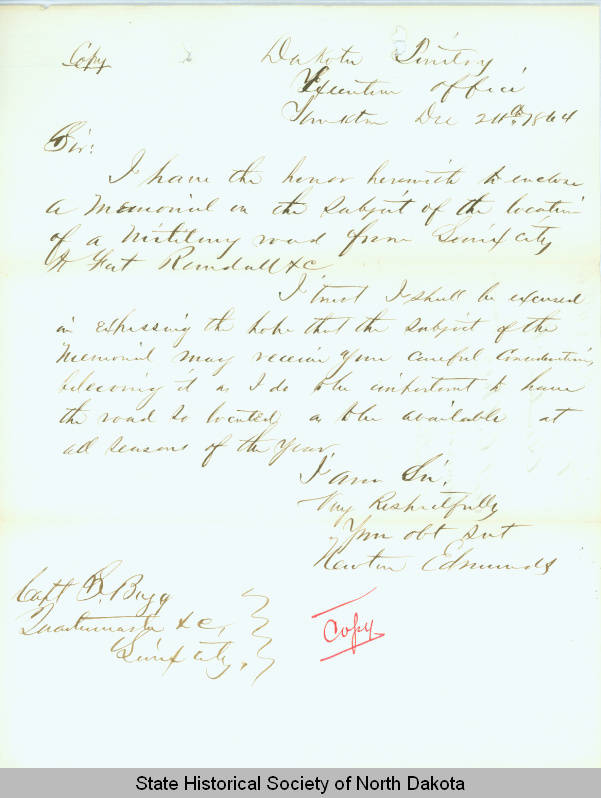 Copy
Dakota Territory
Executive Office
Yankton Dec 24th 1864
Sir:
I have the honor herewith to enclose
a Memorial on the subject of the location
of a Military road from Sioux City
to Fort Randall &c
I trust I shall be excused
in expressing the hope that the subject of the
Memorial may receive your careful consideration
believing it as I do to be important to have
the road so located as to be available at
all seasons of the year.
I am Sir,
Very Respectfully
Your obt Svt
Newton Edmunds
Capt Bugg
Quartermaster &c,
Sioux City,
Copy
State Historical Society of North Dakota